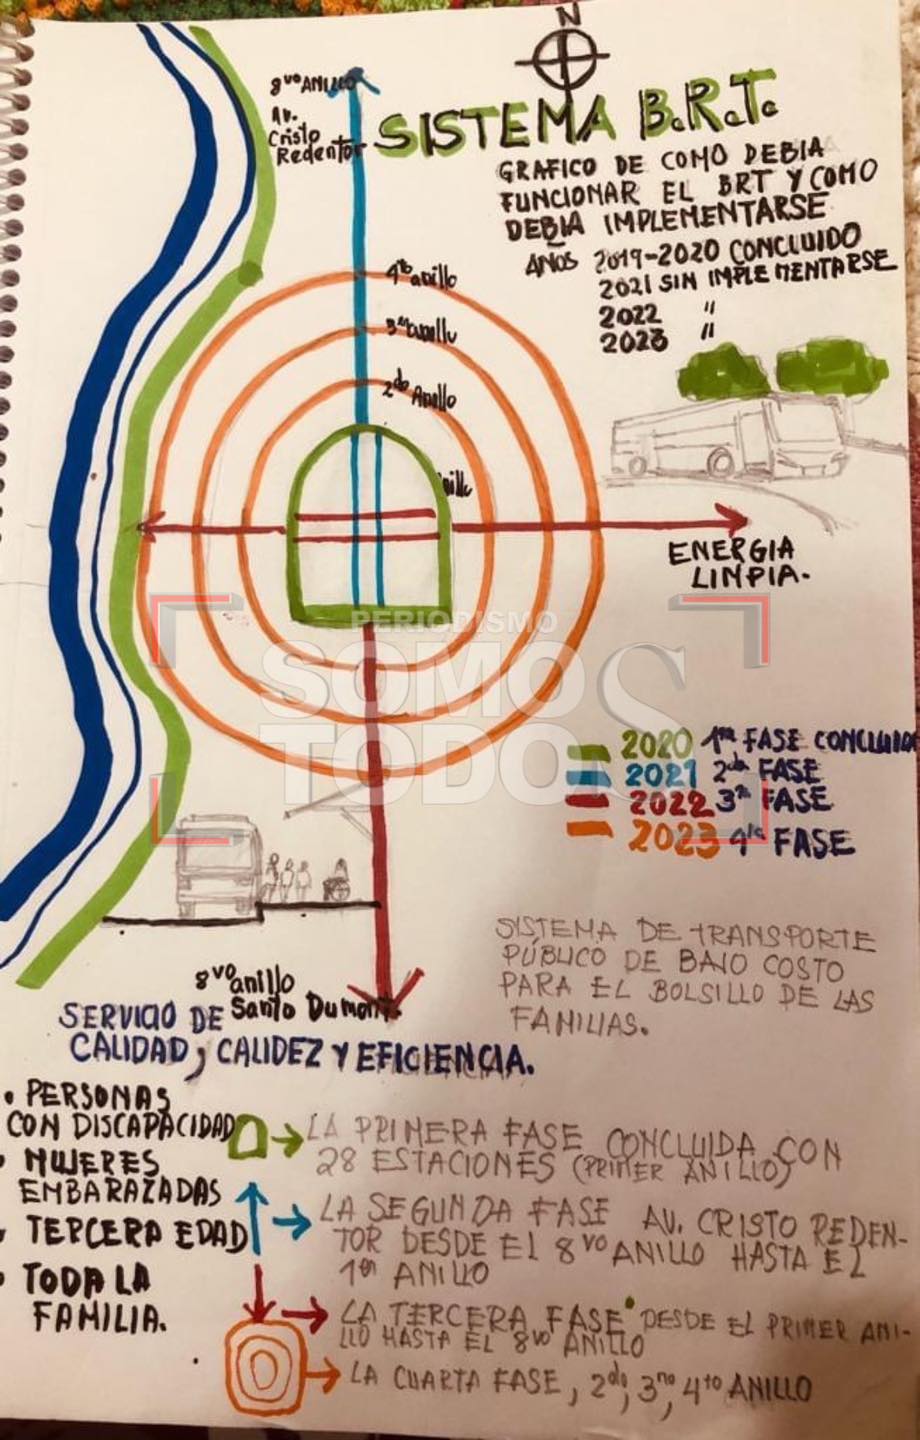 N
8vo ANILLO
Av.
Cristo
Redentor
SISTEMA B.R.T.
GRAFICO DE COMO DEBIA
FUNCIONAR EL BRT Y COMO
DEBIA IMPLEMENTARSE
AÑOS 2019-2020 CONCLUIDO
2021 SIN IMPLEMENTARSE
2022 "
2023 "
4to anillo
3er anillo
2do Anillo
ENERGIA
LINPIA.
PERIODISMO
SOMOS
TODOS
2020 1ra FASE CONCLUIDA
2021 2da FASE
2022 3ra FASE
2023 4ta FASE
SISTEMA DE TRANSPORTE
PÚBLICO DE BAJO COSTO
PARA EL BOLSILLO DE LAS
FAMILIAS.
8vo anillo
Santo Dumont
SERVICIO DE
CALIDAD, CALIDEZ Y EFICIENCIA.
• PERSONAS
CON DISCAPACIDAD
• MUJERES
EMBARAZADAS
• TERCERA EDAD
• TODA LA
FAMILIA.
LA PRIMERA FASE CONCLUIDA CON
28 ESTACIONES (PRIMER ANILLO)
LA SEGUNDA FASE AV. CRISTO REDEN-
TOR DESDE EL 8vo ANILLO HASTA EL
1er ANILLO
LA TERCERA FASE DESDE EL PRIMER ANI-
LLO HASTA EL 8vo ANILLO
LA CUARTA FASE, 2do, 3ro, 4to ANILLO